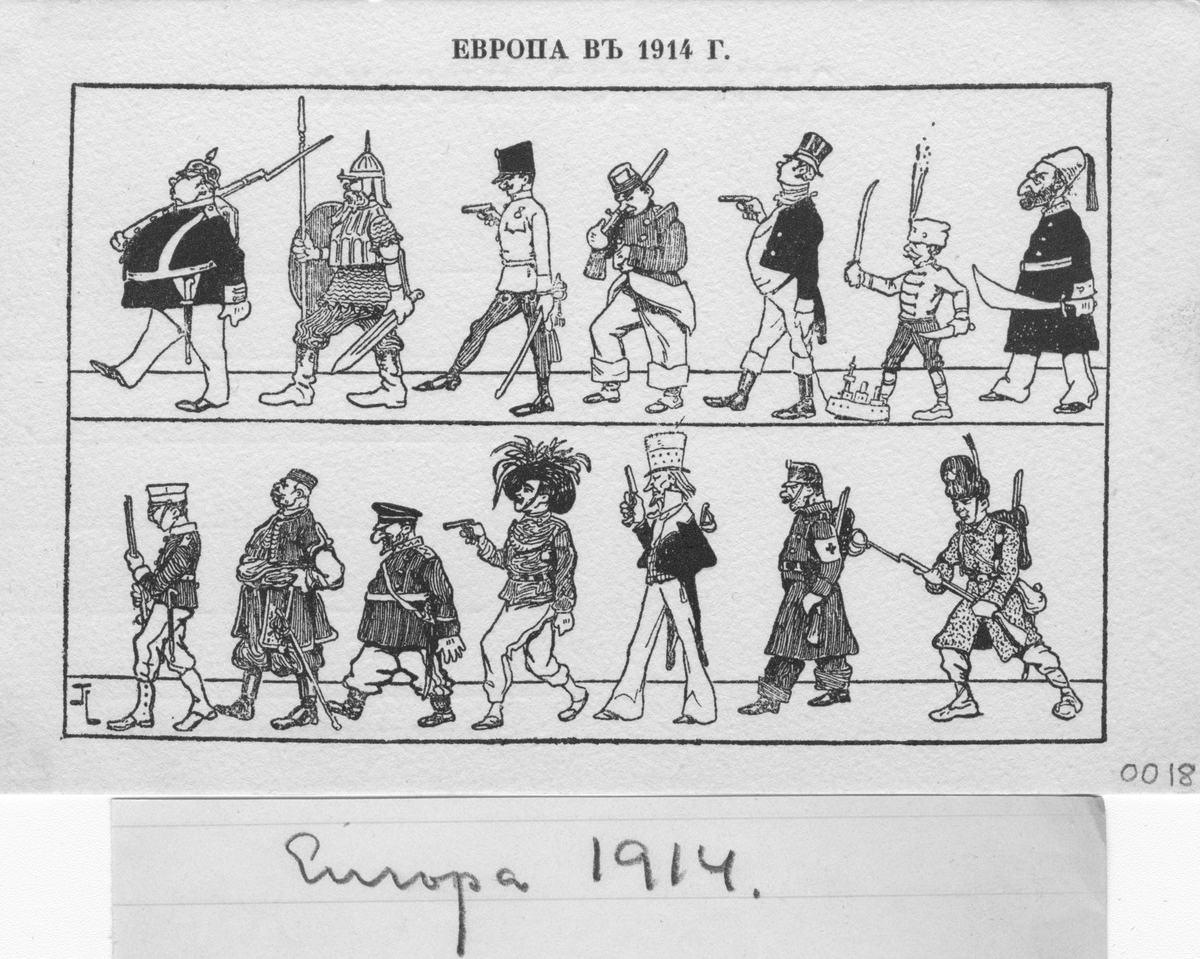 ЕВРОПА ВЪ 1914 Г.
0018
Europa 1914.